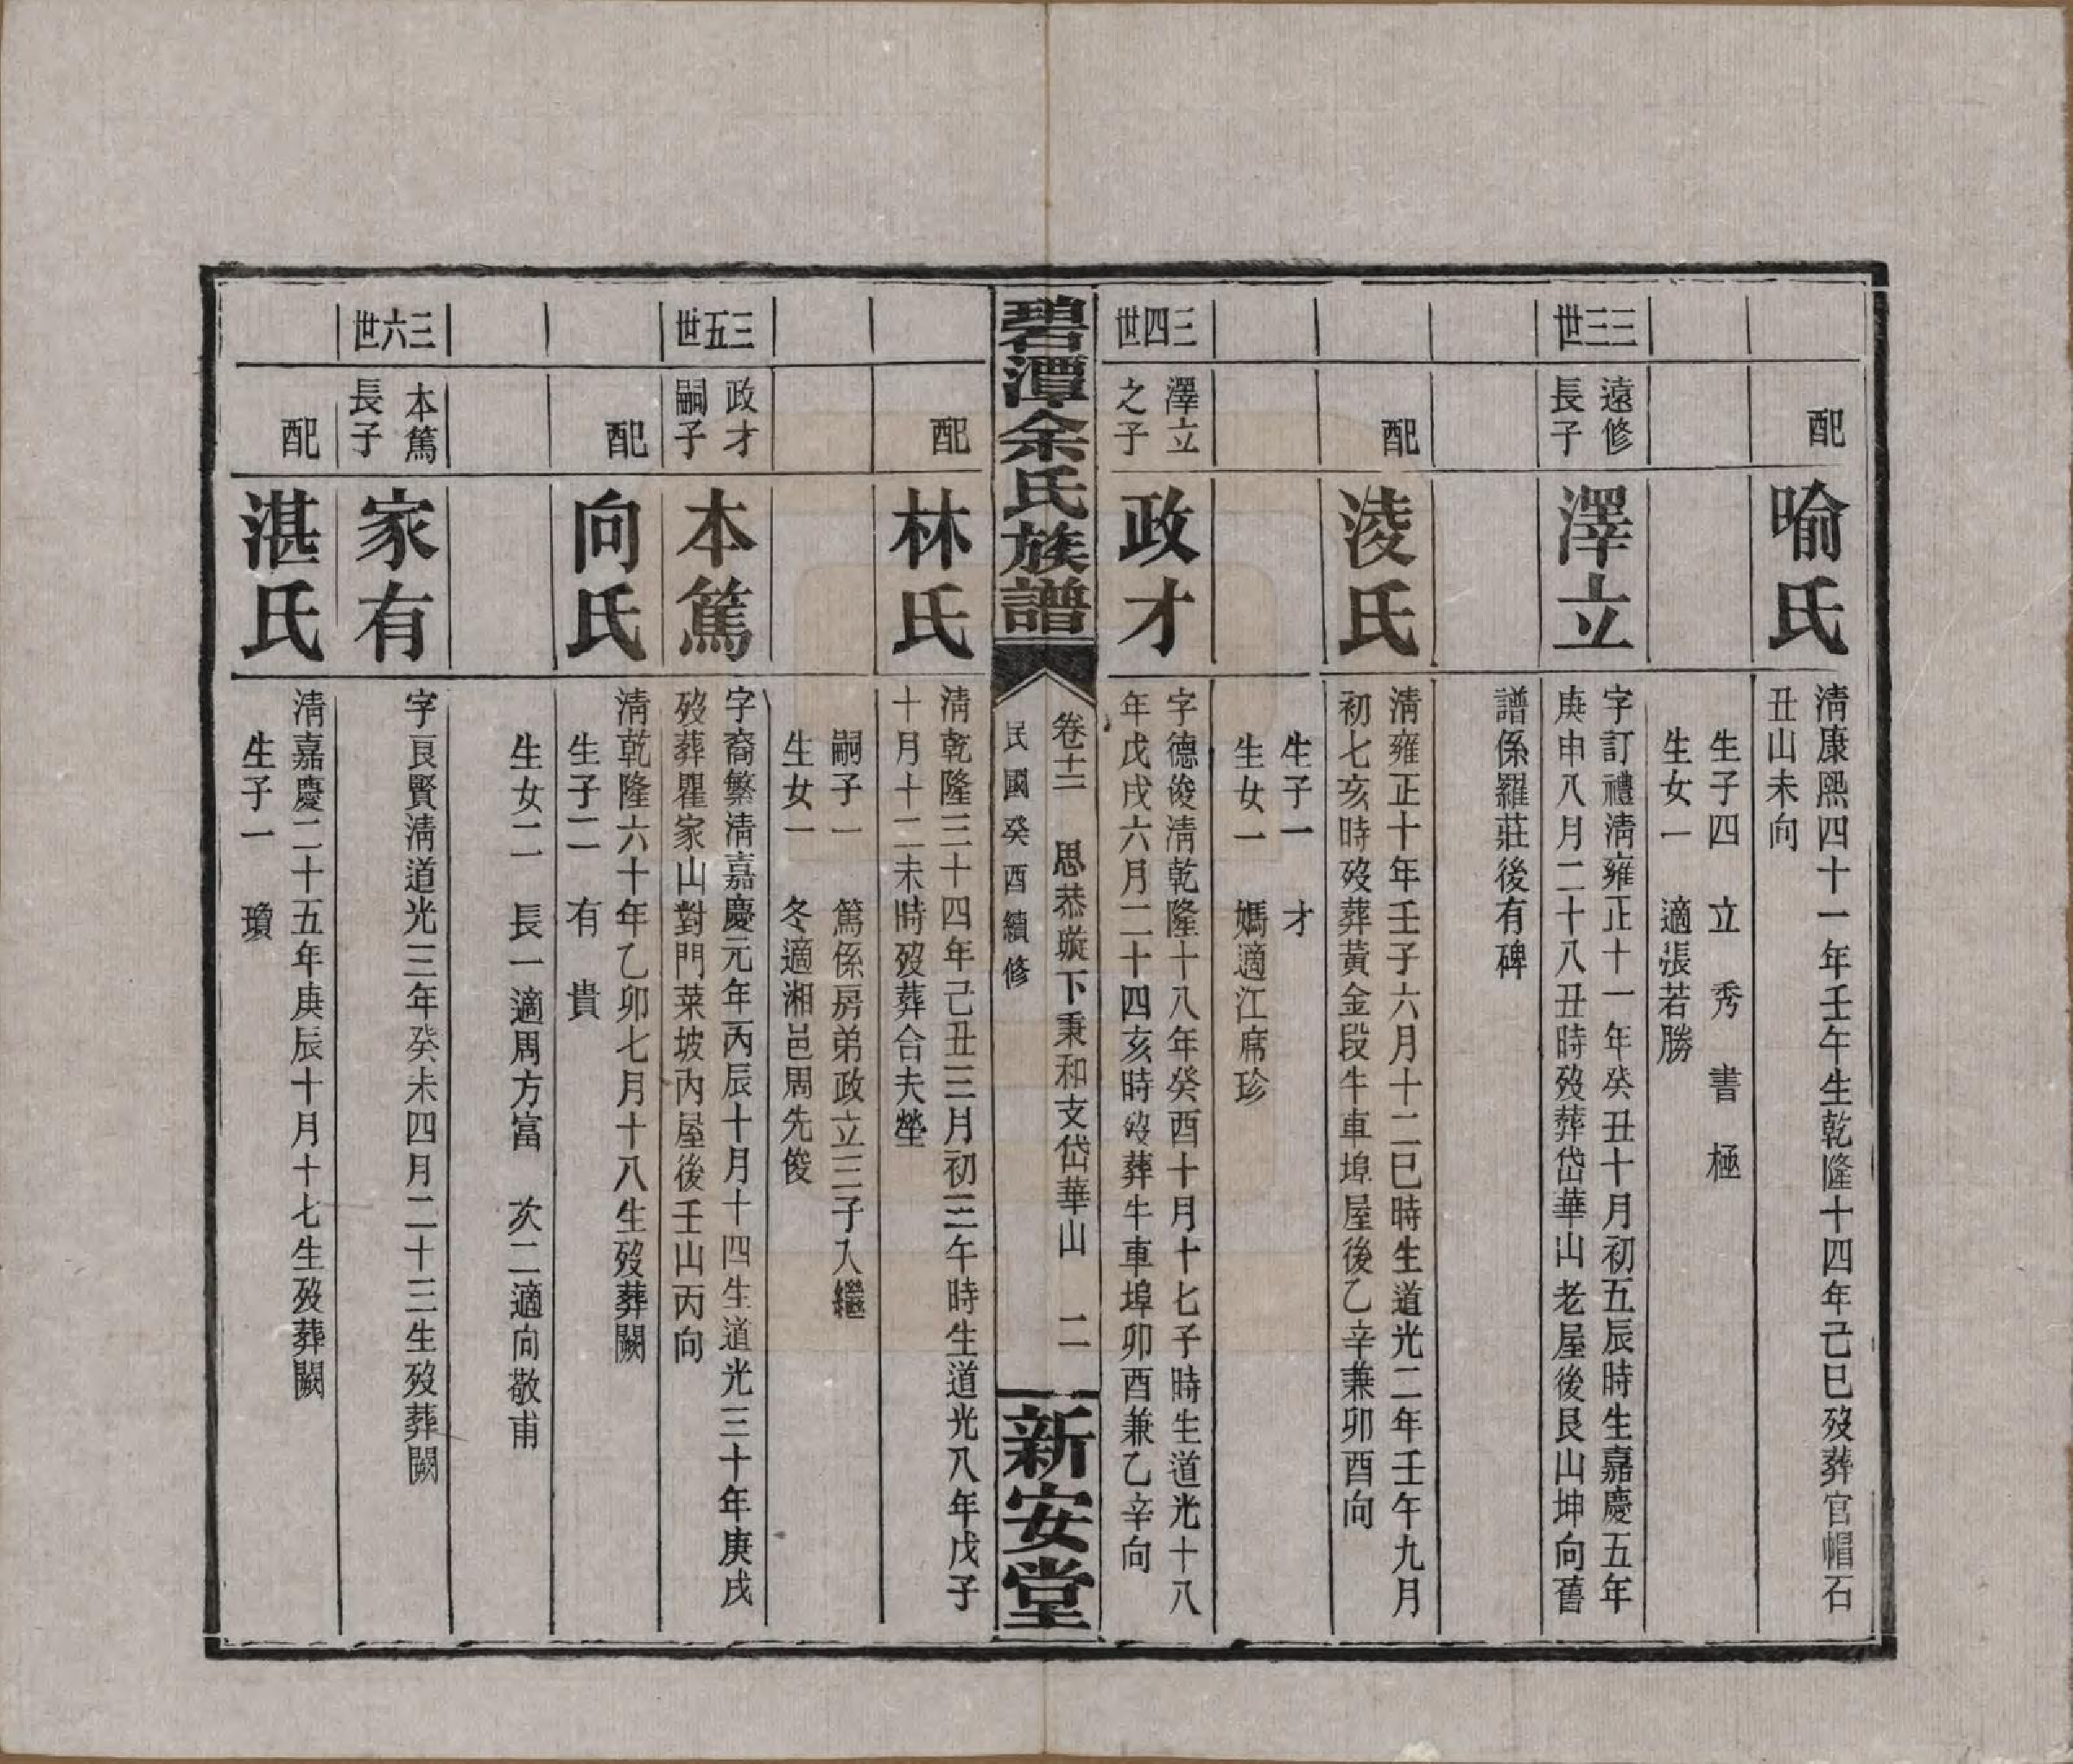 配
喻氏
淸康熙四十一年壬午生乾隆十四年己巳歿葬官帽石
丑山未向
生子四　立　秀　書　極
生女一　適張若勝
三三世
遠修
長子
澤立
字訂禮淸雍正十一年癸丑十月初五辰時生嘉慶五年
庚申八月二十八丑時歿葬岱華山老屋後艮山坤向舊
譜係羅莊後有碑
配
淩氏
淸雍正十年壬子六月十二巳時生道光二年壬午九月
初七亥時歿葬黃金段牛車埠屋後乙辛兼卯酉向
生子一　才
生女一　媽適江席珍
三四世
澤立
之子
政才
字德俊淸乾隆十八年癸酉十月十七子時生道光十八
年戊戌六月二十四亥時歿葬牛車埠卯酉兼乙辛向
碧潭余氏族譜
卷十二　思恭璇下秉和支岱華山　二
民國癸酉續修
新安堂
配
林氏
淸乾隆三十四年己丑三月初三午時生道光八年戊子
十月十二未時歿葬合夫塋
嗣子一　篤係房弟政立三子入繼
生女一　冬適湘邑周先俊
三五世
政才
嗣子
本篤
字裔繁淸嘉慶元年丙辰十月十四生道光三十年庚戌
歿葬瞿家山對門菜坡內屋後壬山丙向
配
向氏
淸乾隆六十年乙卯七月十八生歿葬闕
生子二　有　貴
生女二　長一適周方富　次二適向敬甫
三六世
本篤
長子
家有
字良賢淸道光三年癸未四月二十三生歿葬闕
配
湛氏
淸嘉慶二十五年庚辰十月十七生歿葬闕
生子一　瓊